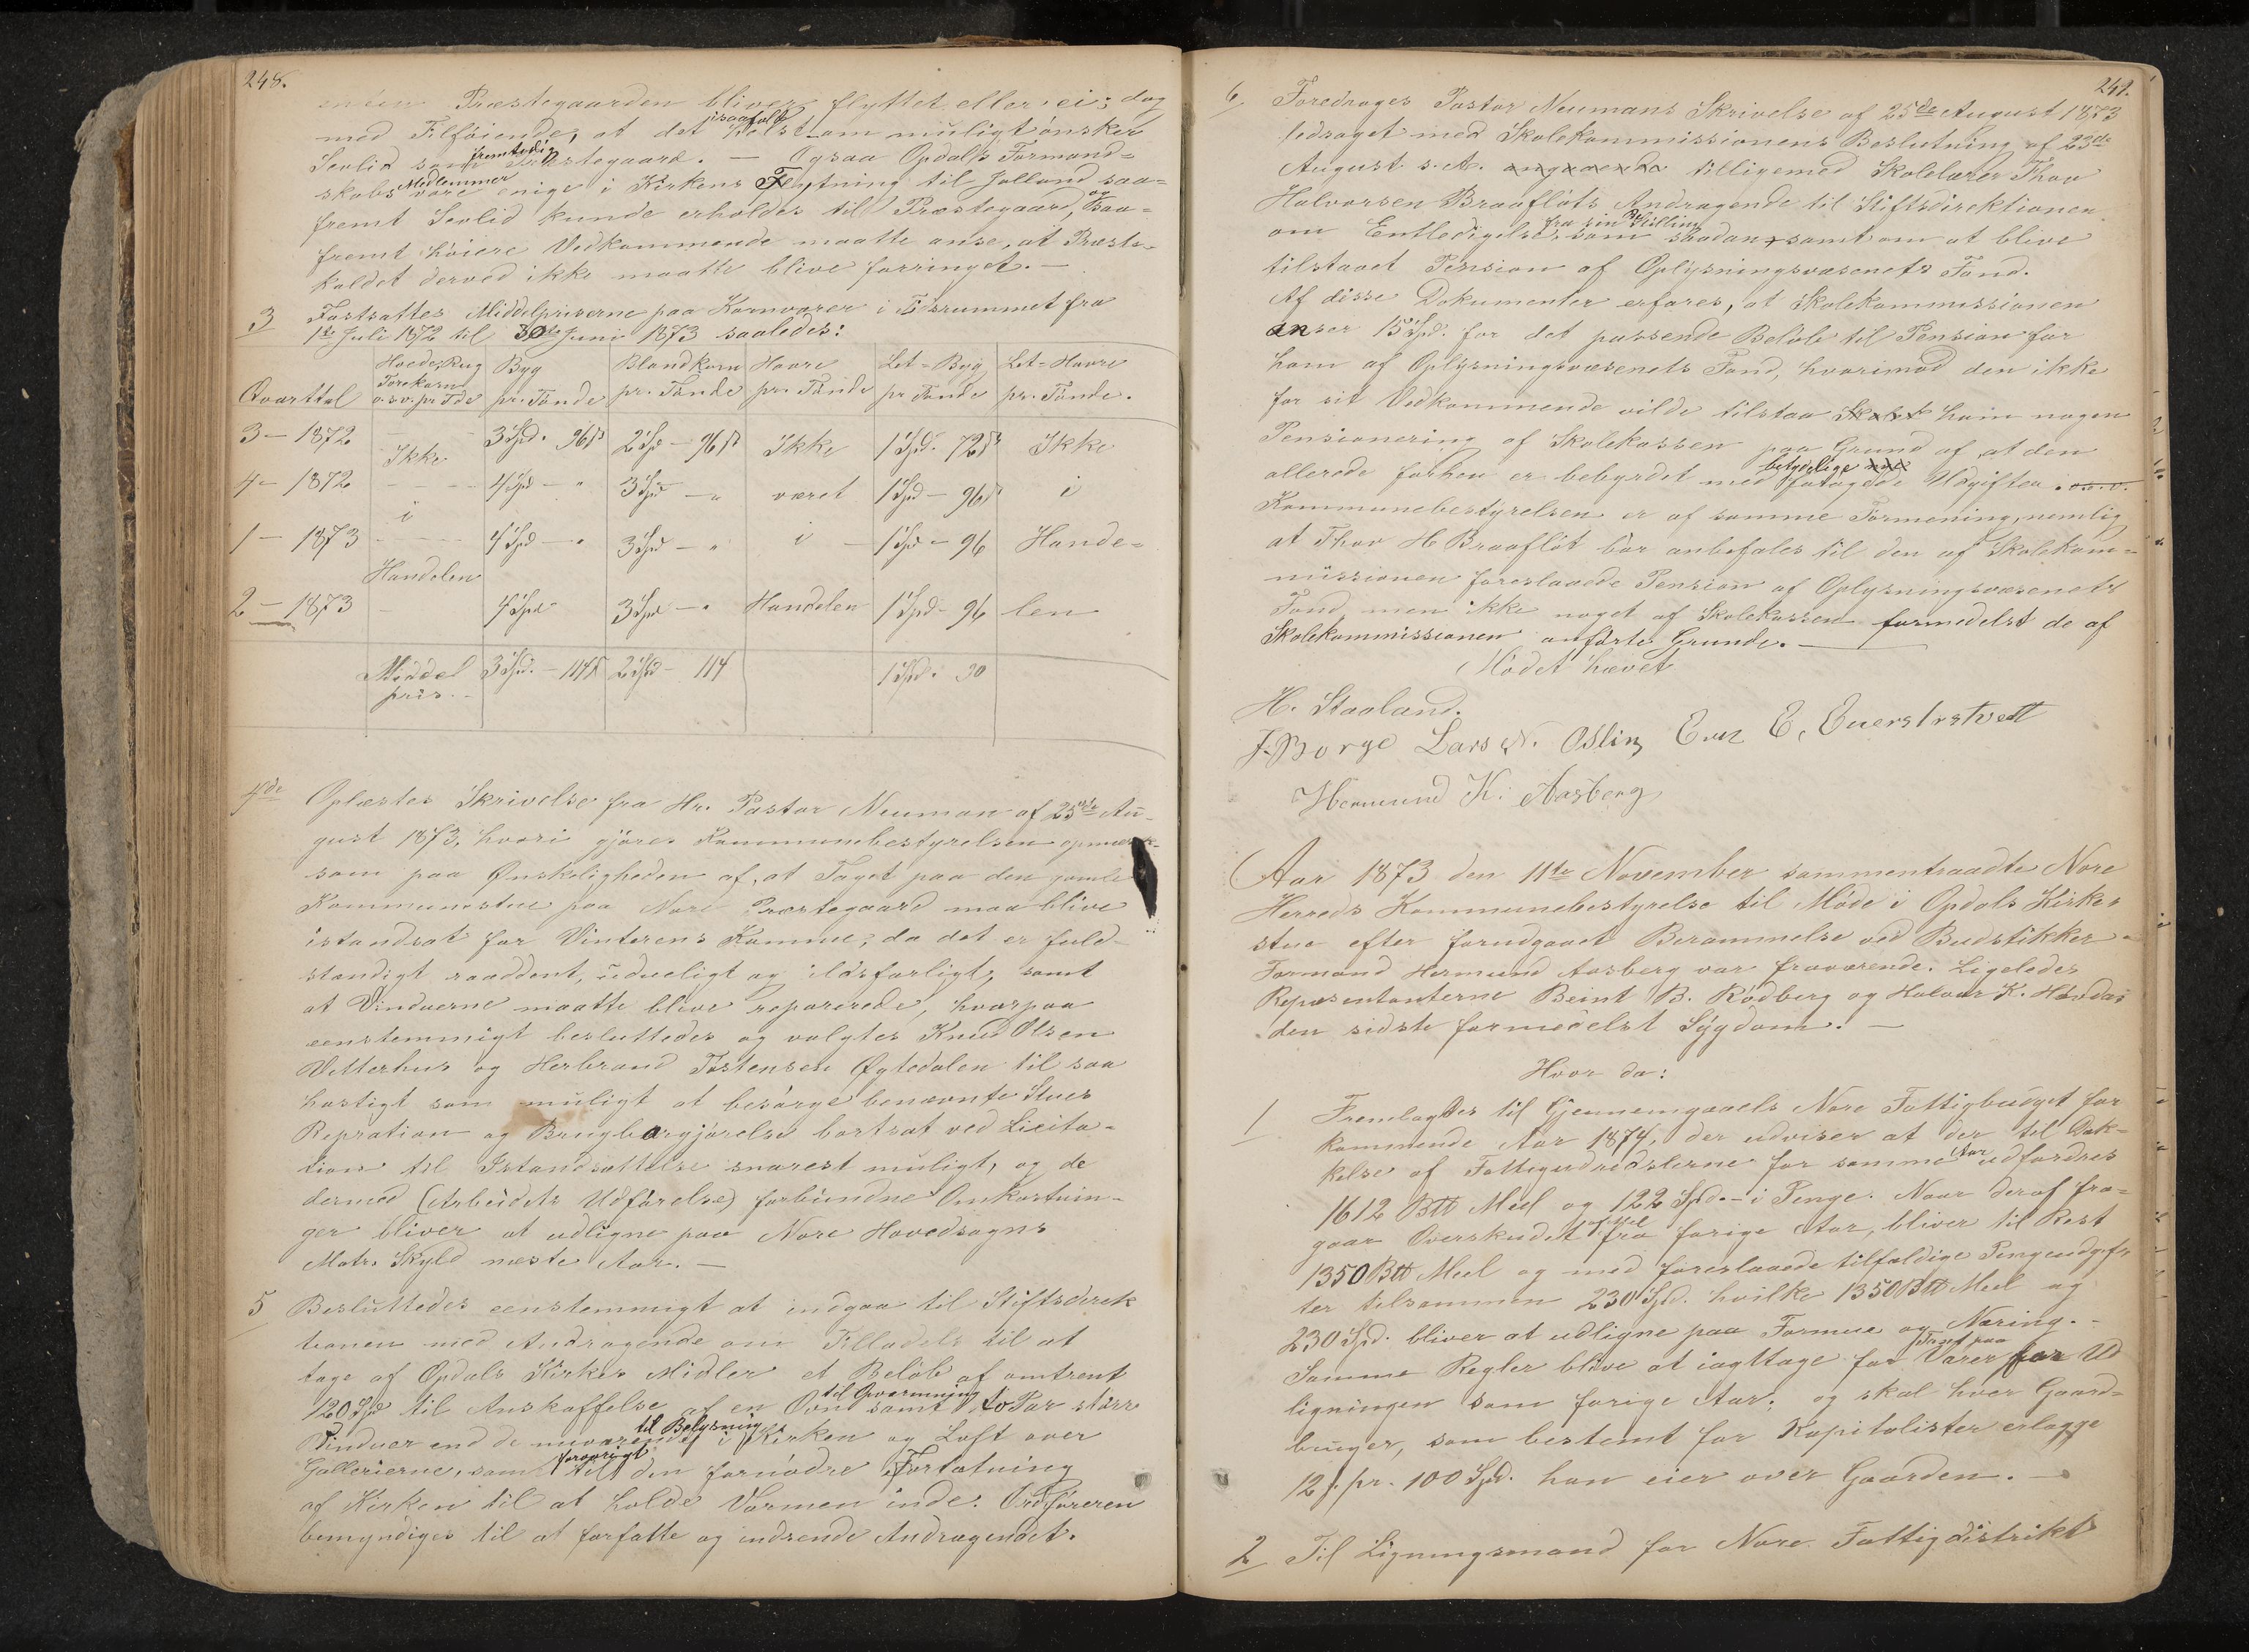 248.
enten Præstegaarden bliver flyttet eller ei; dog
med Tilføiende, at det isaafald helst om muligt ønsker
Sevlid som fremtidig Præstegaard. — Ogsaa Opdals Formand-
skabs Medlemmer vare enige i Kirkens Flytning til Jolland saa-
fremt Sevlid kunde erholdes til Præstegaard, og saa-
fremt høiere Vedkommende maatte anse, at Præste-
kaldet derved ikke maatte blive forringet. —
3 Fastsattes Middelpriserne paa Kornvarer i Tidsrummet fra
1ste Juli 1872 til 30te Juni 1873 saaledes:
Qvarttal | Hvede, Rug Torekorn o.s.v. pr Tde | Byg pr. Tønde | Blandkorn pr. Tønde | Havre pr. Tønde | Let-Byg pr Tønde | Let-Havre pr. Tønde.
3 - 1872 | Ikke | 3 Spd. 96 ß | 2 Sp - 96 ß | Ikke | 1 Spd. 72 ß | Ikke
4 - 1872 | i | 4 Spd - " | 3 Spd - " | været | 1 Spd - 96 ß | i
1 - 1873 | Handelen | 4 Spd - " | 3 Spd - " | i | 1 Spd - 96 | Hande-
2 - 1873 | - | 4 Spd | 3 Spd - " | Handelen | 1 Spd - 96 | len
Middel pris. - | 3 Spd. - 114 ß | 2 Spd - 114 | | 1 Spd. 30
4de Oplæstes Skrivelse fra Hr. Pastor Neuman af 25de Au-
gust 1873, hvori gjøres Kommunebestyrelsen opmærk-
som paa Ønskeligheden af, at Taget paa den gamle
Kommunestue paa Nore Præstegaard maa blive
istandsat før Vinterens Komme; da det er fuld-
stændigt raaddent, udueligt og ildsfarligt, samt
at Vinduerne maatte blive reparerede, hvorpaa
eenstemmigt besluttedes og valgtes Knud Olsen
Vetterhus og Herbrand Tostensen Øytedalen til saa
hastigt som muligt at besørge benævnte Stues
Repration og Brugbargjørelse bortsat ved Licita-
tion til Istandsættelse snarest muligt, og de
dermed (Arbeidets Udførelse) forbundne Omkostnin-
ger bliver at udligne paa Nore Hovedsogns
Matr. Skyld næste Aar. —
5 Besluttedes eenstemmigt at indgaa til Stiftsdirek
tionen med Andragende om Tilladelse til at
tage af Opdals Kirkes Midler et Beløb af omtrent
120 Spd til Anskaffelse af en Ovn til Opvarmning samt to Par større
Vinduer end de nuværende til Belysning i Kirken og Loft over
Gallerierne, samt forøvrigt til den fornødne Fortætning
af Kirken til at holde Varmen inde. Ordføreren
bemyndiges til at forfatte og indsende Andragendet.
249.
6 Foredroges Pastor Neumans Skrivelse af 25de August 1873
ledsaget med Skolekommissionens Beslutning af 23de
August s. A. angaaende tilligemed Skolelærer Thov
Halvorsen Braafløts Andragende til Stiftsdirektionen
om Entledigelse fra sin Stilling som saadan, samt om at blive
tilstaaet Pension af Oplysningsvæsenets Fond.
Af disse Dokumenter erfares, at Skolekommissionen
anser 15 Spd. for det passende Beløb til Pension for
ham af Oplysningsvæsenets Fond, hvorimod den ikke
for sit Vedkommende vilde tilstaa ham nogen
Pensionering af Skolekassen paa Grund af at den
allerede forhen er bebyrdet med betydelige forøgede Udgifter. o.s.v.
Kommunebestyrelsen er af samme Formening, nemlig
at Thov H. Braafløt bør anbefales til den af Skolekom-
missionen foreslaaede Pension af Oplysningsvæsenets
Fond, men ikke noget af Skolekassen formedelst de af
Skolekommissionen anførte Grunde. —
Mødet hævet
H. Staaland.
J. Borge Lars N. Oslin, E. Enerstvett
Hermund K. Aasberg
Aar 1873 den 11te November sammentraadte Nore
Herreds Kommunebestyrelse til Møde i Opdals Kirke-
stue efter forudgaaet Berammelse ved Budstikker.
Formand Hermund Aasberg var fraværende. Ligeledes
Repæsentanterne Beint B. Rødberg og Halvor K.
den sidste formedelst Sygdom. —
Hvor da:
1 Fremlagdes til Gjennemgaaels Nore Fattigbudget for
kommende Aar 1874, der udviser at der til Dæk-
kelse af Fattigudredslerne for samme Aar udfordres
1612 Btt Meel og 122 Spd. - i Penge. Naar deraf fra-
gaar Overskudet fra forige Aar, bliver til Rest
1350 Btt Meel og med foreslaaede tilfældige Pengeudgif-
ter tilsammen 230 Spd. hvilke 1350 Btt Meel og
230 Spd. bliver at udligne paa Formue og Næring. -
Samme Regler blive at iagttage for Taxt paa Varer for Ud
ligningen som forige Aar; og skal hver Gaard-
bruger, som bestemt for Kapitalister erlægge
12 ß. pr. 100 Spd. han eier over Gaarden. —
2 Til Ligningsmænd for Nore Fattigdistrikt